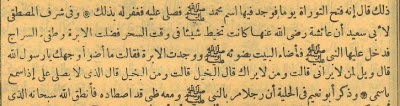 ذلك قال إنه فتح التوراة يوما فوجد فيها اسم محمد ﷺ فصلى عليه فغفر له بذلك * وفى شرف المصطفى
لابى سعيد أن عائشة رضى الله عنها كانت تخيط شيئا فى وقت السحر فضلت الابرة وطفئ السراج
فدخل عليها النبى ﷺ فأضاء البيت بضوئه ﷺ ووجدت الابرة فقالت ما أضوأ وجهك يارسول الله
قال ويل لمن لا يرانى قالت ومن لا يراك قال البخيل قالت ومن البخيل قال الذى لا يصلى على اذا سمع
باسمى * وذكر أبو نعيم فى الحلية أن رجلا مر بالنبى ﷺ ومعه ظبى قد اصطاده فأنطق الله سبحانه الذى